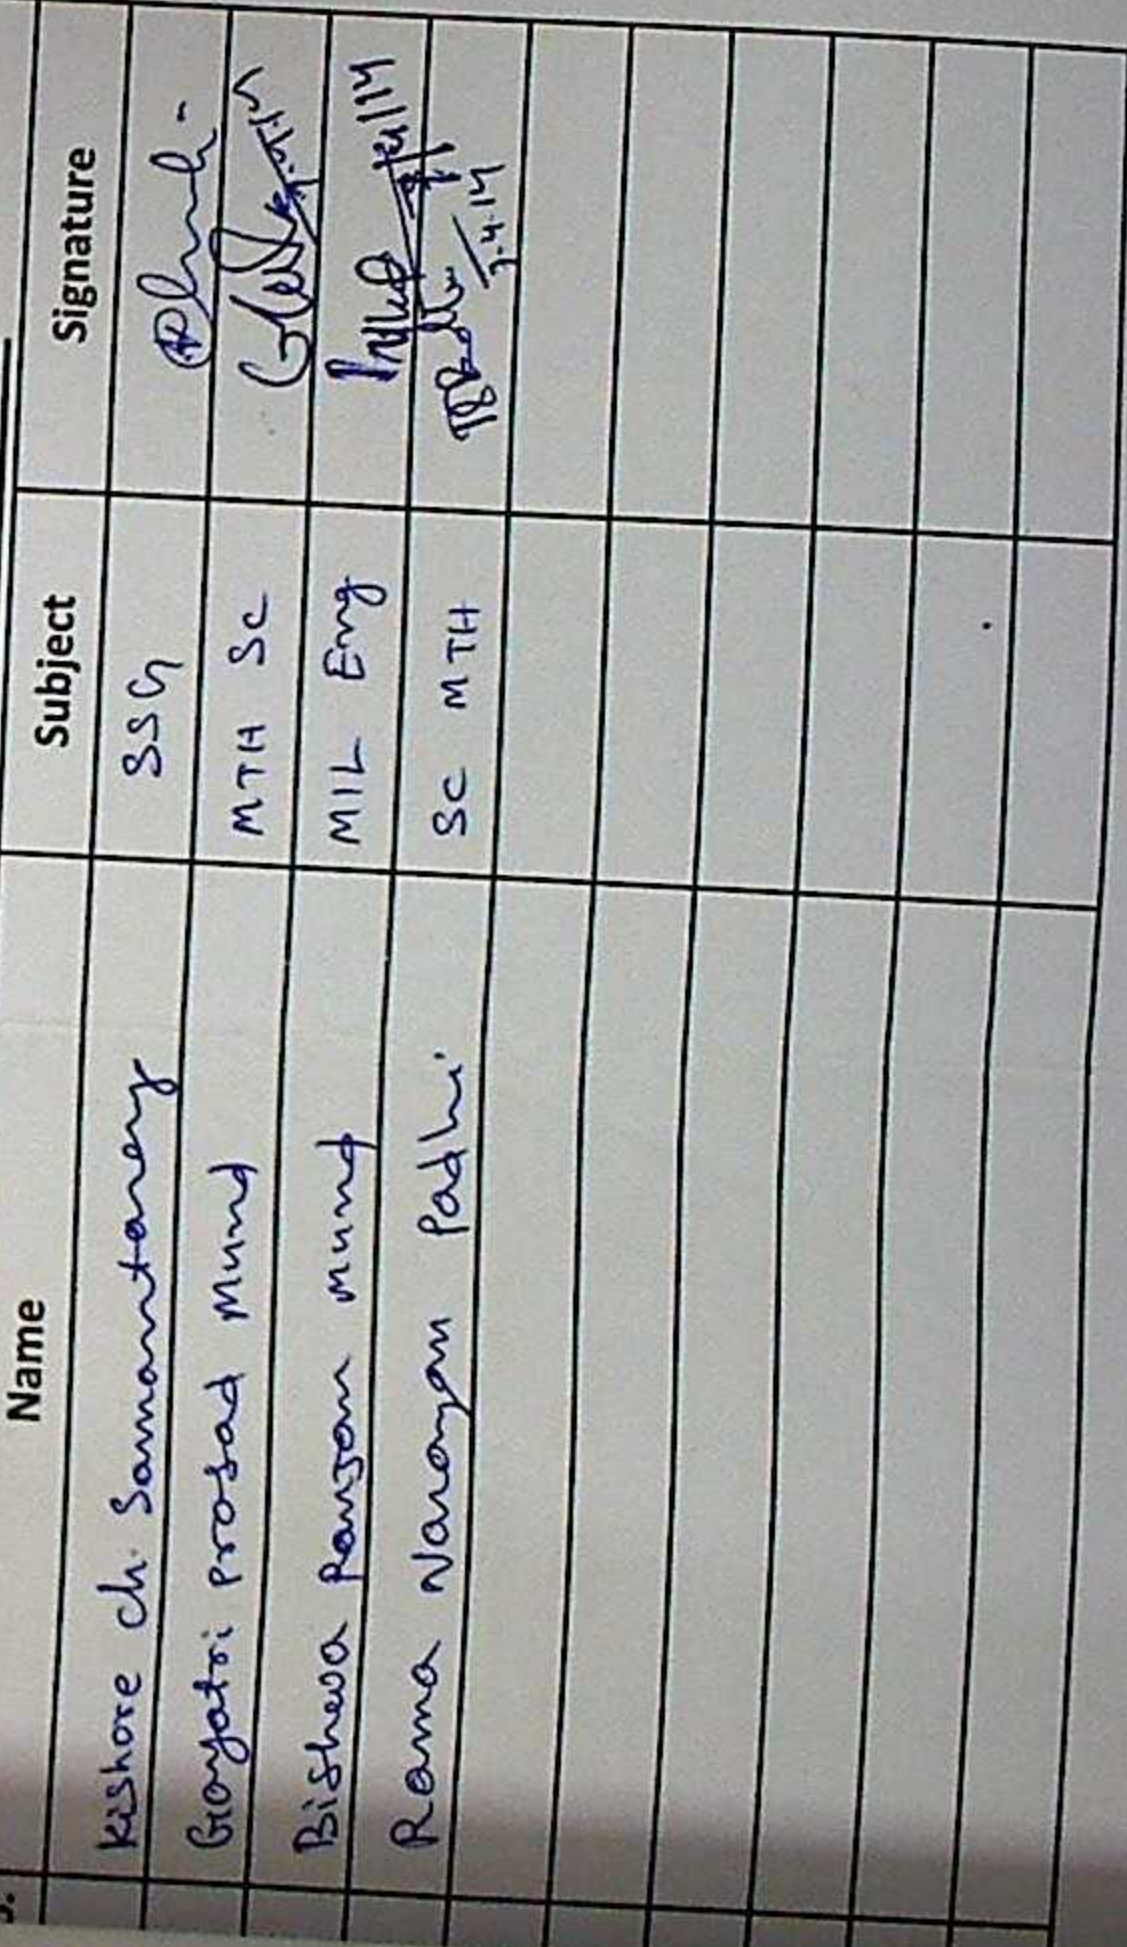 Name Subject Signature
Kishore ch. Samantaray SSG
Gayatri Prasad Mund MTH SC
Bishwa Ranjan Mund MIL Eng
Rama Narayan Padhi SC MTH 7-4-14